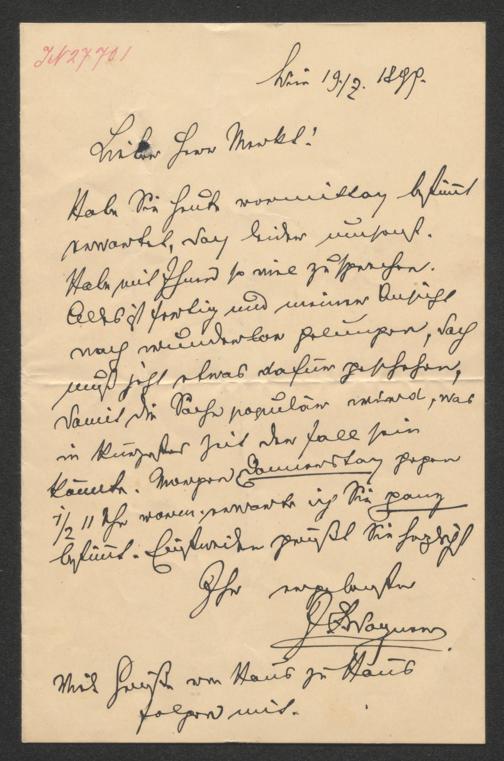 IN 27701
Wien 19./7. 1899.
Lieber Herr Merkl!
Habe Sie heute vormittag bestimmt
erwartet, doch leider umsonst.
Habe mit Ihnen so viel zu sprechen.
Alles ist fertig und meiner Ansicht
nach wunderbar gelungen, doch
muß jetzt etwas dafür geschehen,
damit die Sache populär wird, was
in kürzester Zeit der Fall sein
könnte. Morgen Donnerstag gegen
1/2 11 Uhr vorm. erwarte ich Sie ganz
bestimmt. Einstweilen grüßt Sie herzlich
Ihr ergebenster
J. F. Wagner
Viele Grüße von Haus zu Haus
folgen mit.